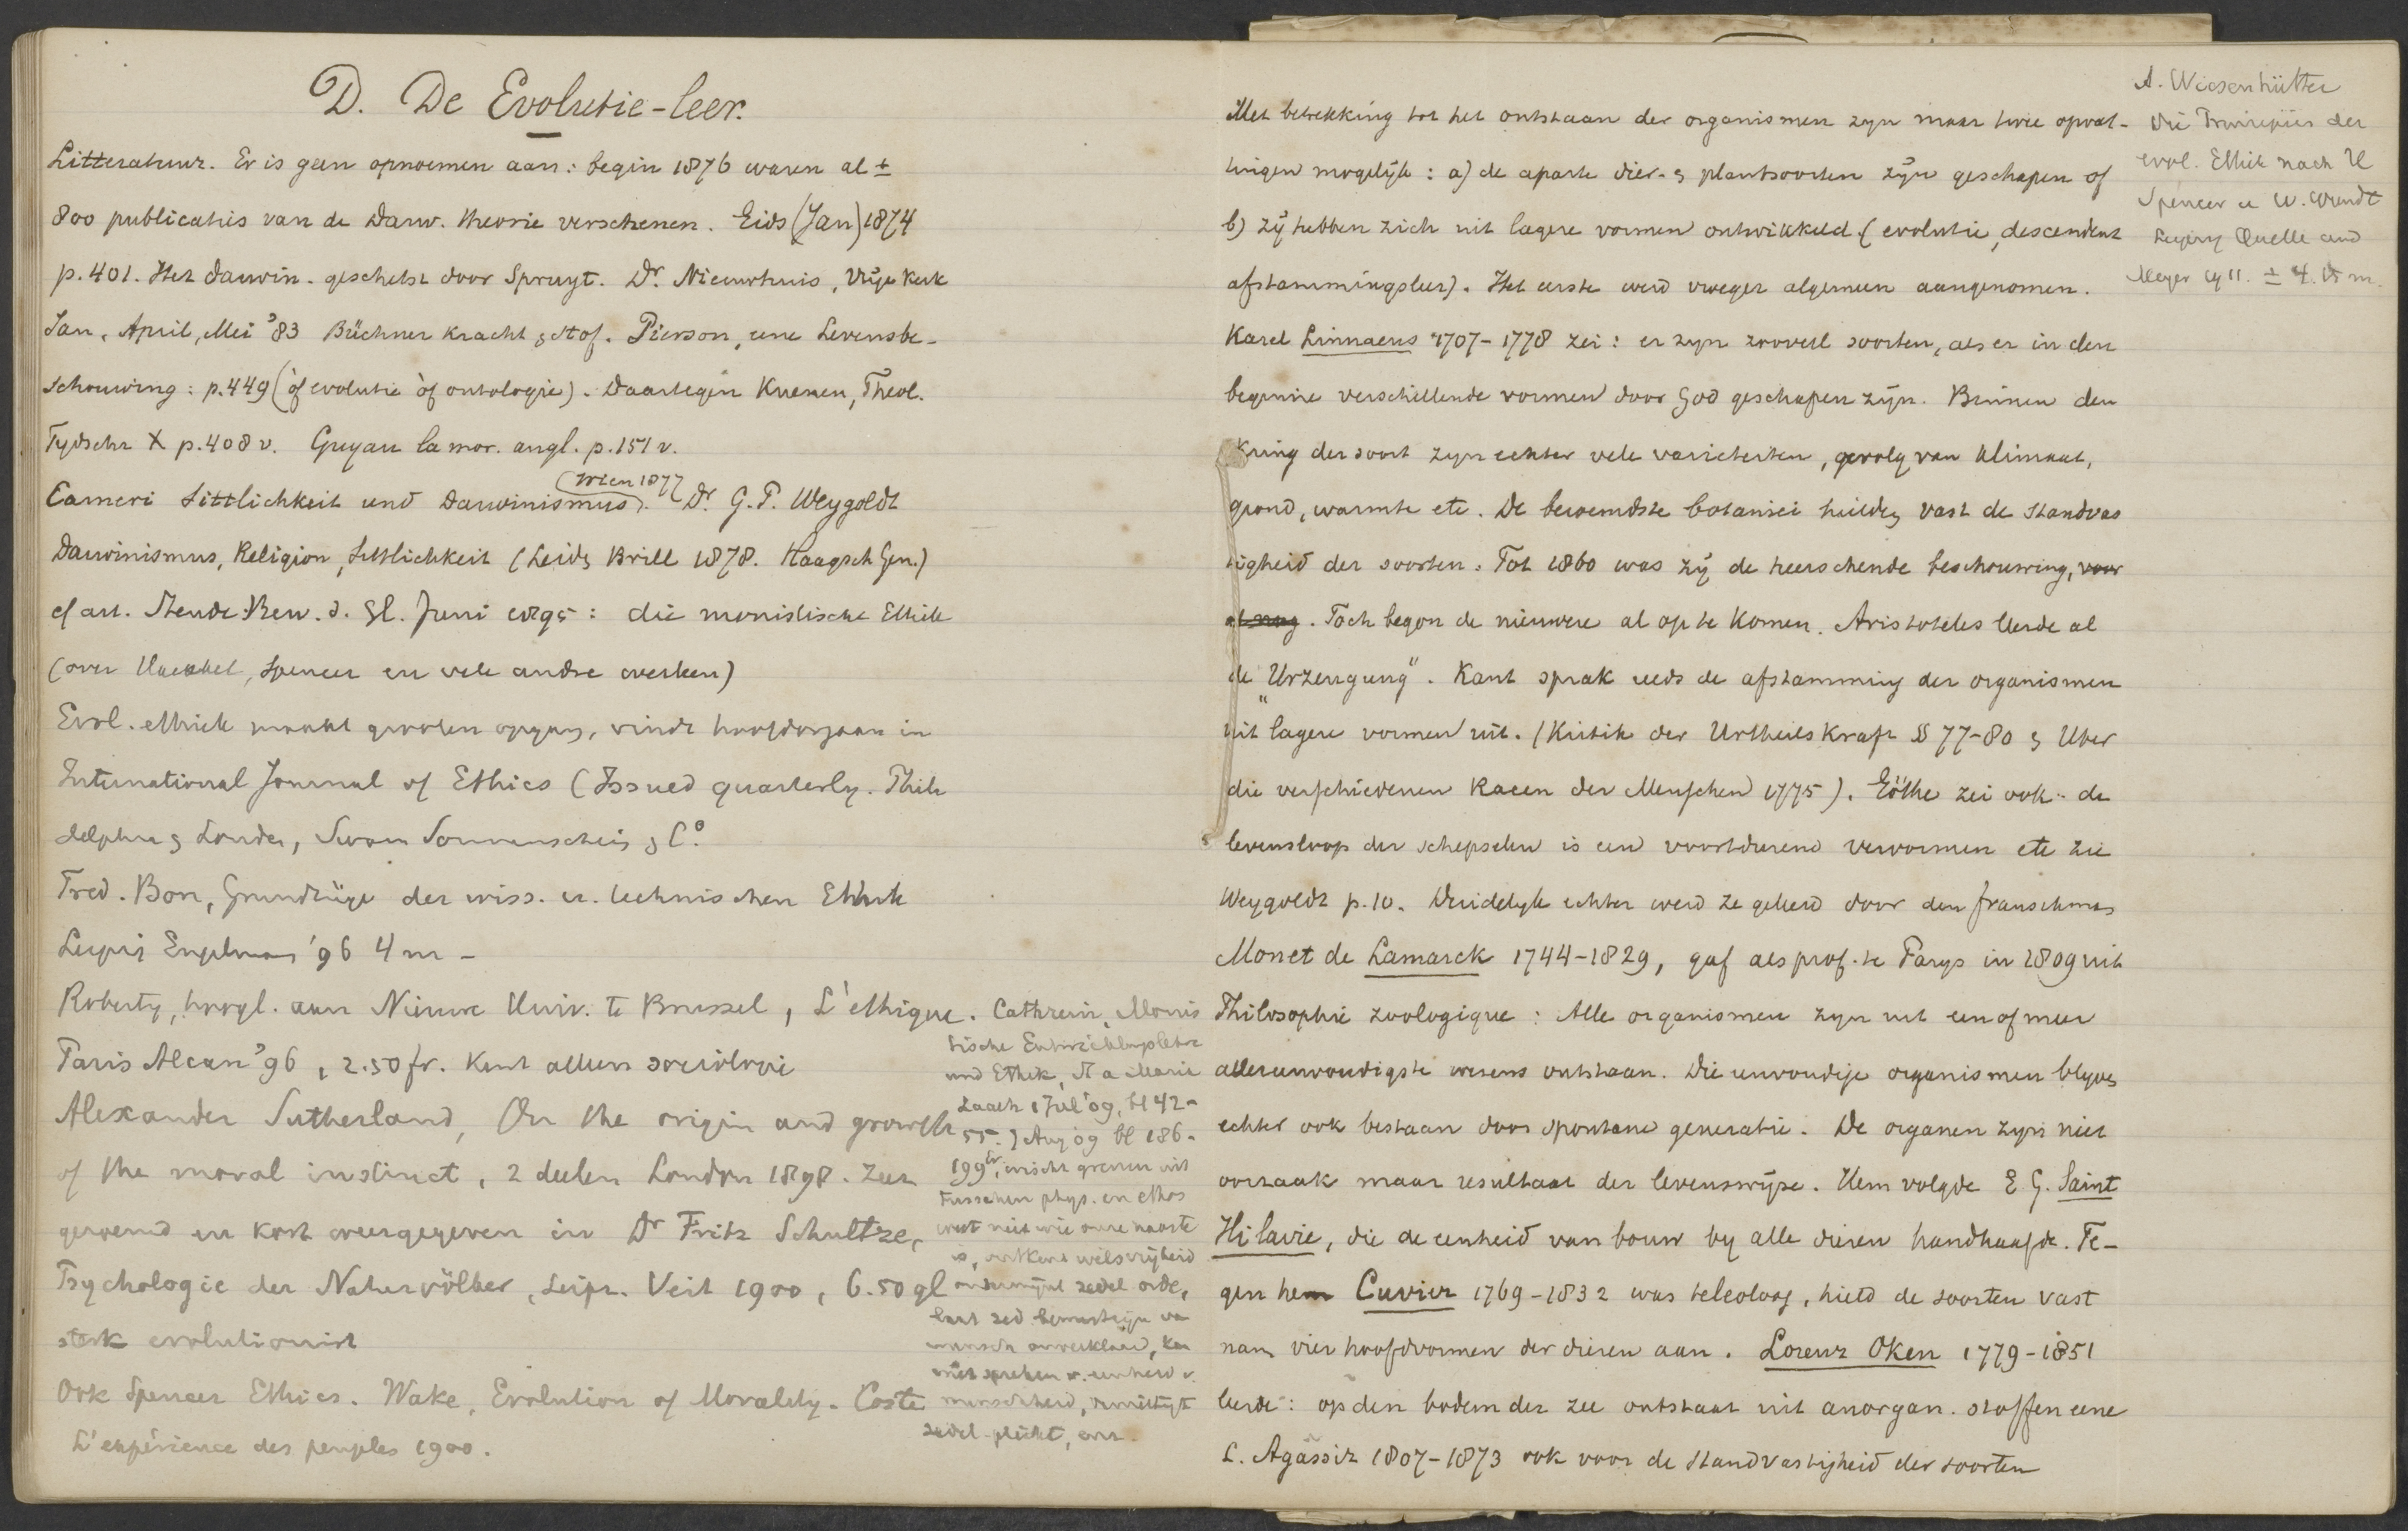 D. De Evolutie-leer.
Litteratuur. Er is geen opnoemen aan: begin 1876 waren al ±
800 publicaties van de Darw. theorie verschenen. Gids (Jan) 1874
p. 401. Het Darwin. geschetst door Spruyt. Dr. Nieuwhuis, Vrije Kerk
Jan, April, Mei '83 Büchner Kracht & stof. Pierson, eene Levensbe-
schouwing: p. 449 (òf evolutie òf ontologie). Daartegen Kuenen, Theol.
Tydschr X p. 408 v. Guyau la mor. angl. p. 151 v.
(Wien 1877
Carneri Sittlichkeit und Darwinismus). Dr. G. P. Weygoldt
Darwinismus, Religion, Sittlichkeit (Leids Brill 1878. Haagsch Gen.)
cf art. Bew. d. Gl. Juni 1895: die monistische Ethik
(over Haeckel, Spencer en vele andre werken)
Evol. ethiek maakt grooten opgang, vindt hoofdorgaan in
International Journal of Ethics (Issued quarterly. Phila
delphia & London, Swan Sonnenschein & Co.
Fred. Bon, Grundzüge der wiss. u. technischen Ethik
Leipzig Engelmann '96 4 m -
Roberty, hoogl. aan Nieuwe Univ. te Brussel, L'ethique.
Paris Alcan '96, 2.50 fr. Kent alleen sociologie
Alexander Sutherland, On the origin and growth
of the moral instinct, 2 deelen London 1898. Zeer
geroemd en kort weergegeven in Dr Fritz Schultze,
Psychologie der Naturvölker, Leipz. Veit 1900, 6.50 gl
sterk evolutionist
Ook Spencer Ethics. Wake, Evolution of Morality. Coste
L'expérience des peuples 1900.
Cathrein, Monis
tische Entwicklungslehre
und Ethik, St a Maria
Laach 1 Juli '09, bl 42-
55. 1 Aug 09 bl 186-
199, wischt grenzen uit
tusschen phys. en ethos
weet niet wie onze naaste
is, ontkent wilsvrijheid
ondermijnt zedel orde,
laat zed bewustzijn van
mensch onverklaard, kan
niet spreken v. eenheid v.
menschheid, vernietigt
zedel. plicht, enz.
Met betrekking tot het ontstaan der organismen zyn maar twee opvat-
tingen mogelijk: a) de aparte dier- & plantsoorten zijn geschapen of
b) zij hebben zich uit lagere vormen ontwikkeld (evolutie, descendent
afstammingsleer). Het eerste werd vroeger algemeen aangenomen.
Karel Linnaeus 1707-1778 zei: er zyn zooveel soorten, als er in den
beginne verschillende vormen door God geschapen zijn. Binnen den
Kring der soort zyn echter vele varieteiten, gevolg van klimaat,
grond, warmte etc. De beroemdste botanici hielden vast de standvas
tigheid der soorten. Tot 1860 was zij de heerschende beschouwing, voor
al nog. Toch begon de nieuwere al op te komen. Aristoteles leerde al
de "Urzeugung". Kant sprak reeds de afstamming der organismen
uit lagere vormen uit. (Kritik der Urtheilskraft §§ 77-80 & Uber
die verschiedenen Racen der Menschen 1775). Göthe zei ook: de
levensloop der schepselen is een voortdurend vervormen etc zie
Weygoldt p. 10. Duidelijk echter werd ze geleerd door den franschman
Monet de Lamarck 1744-1829, gaf als prof. te Parys in 1809 uit
Philosophie zoologique: Alle organismen zyn uit een of meer
allereenvoudigste wesens ontstaan. Die eenvoudige organismen blyven
echter ook bestaan door spontane generatie. De organen zyn niet
oorzaak maar resultaat der levenswijze. Hem volgde E G. Saint
Hilaire, die de eenheid van bouw by alle dieren handhaafde. Te-
gen hem Cuvier 1769-1832 was teleoloog, hield de soorten vast
nam vier hoofdvormen der dieren aan. Lorenz Oken 1779-1851
leerde: op den bodem der zee ontstaat uit anorgan. stoffen eene
L. Agassiz 1807-1873 ook voor de standvastigheid der soorten
A. Wiesenhütter
Die Prinzipien der
evol. Ethik nach H
Spencer u W. Wundt
Leipzig Quelle und
Meyer 1911. ±